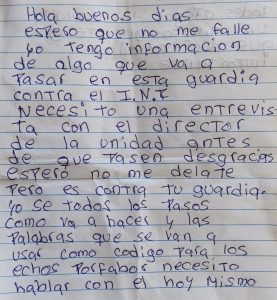 Hola buenos dias
espero que no me falle
yo tengo informacion
de algo que va a
Pasar en esta guardia
contra el I.N.T
Necesito una entrevis
ta con el director
de la unidad antes
de que Pasen desgracias
espero no me delate
Pero es contra tu guardia.
yo se todos los Pasos
como va a haces y las
Palabras que se van a
usar como codigo Para los
echos Porfabor necesito
hablar con el hoy mismo